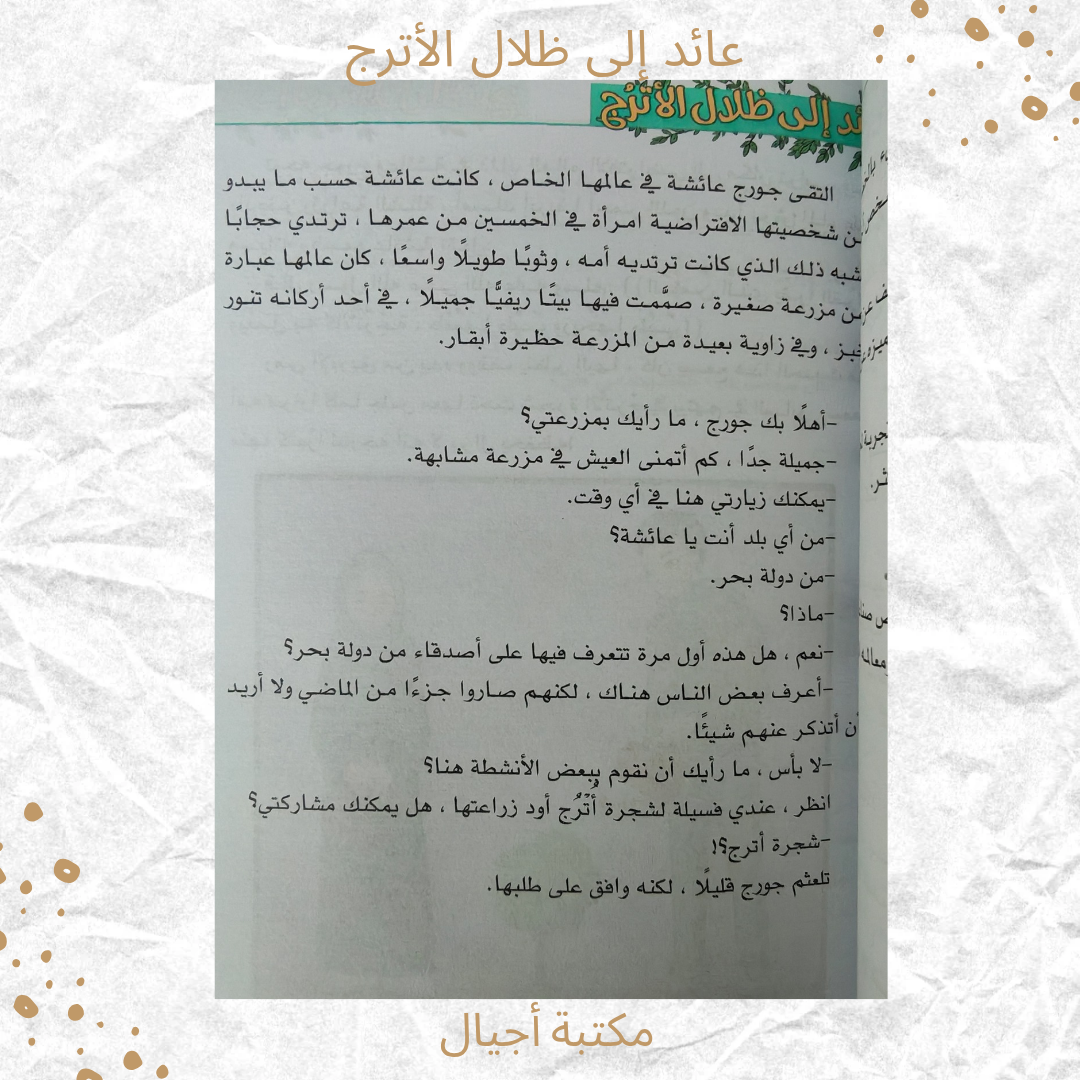 عائد إلى ظلال الأترج
ئد إلى ظلال الأترج
التقى جورج عائشة في عالمها الخاص ، كانت عائشة حسب ما يبدو
من شخصيتها الافتراضية امرأة في الخمسين من عمرها ، ترتدي حجابًا
شبه ذلك الذي كانت ترتديه أمه ، وثوبًا طويلًا واسعًا ، كان عالمها عبارة
من مزرعة صغيرة ، صمَّمت فيها بيتًا ريفيًّا جميلًا ، في أحد أركانه تنور
خبز ، وفي زاوية بعيدة من المزرعة حظيرة أبقار.
-أهلًا بك جورج ، ما رأيك بمزرعتي؟
-جميلة جدًا ، كم أتمنى العيش في مزرعة مشابهة.
-يمكنك زيارتي هنا في أي وقت.
-من أي بلد أنت يا عائشة؟
-من دولة بحر.
-ماذا؟
-نعم ، هل هذه أول مرة تتعرف فيها على أصدقاء من دولة بحر؟
-أعرف بعض الناس هناك ، لكنهم صاروا جزءًا من الماضي ولا أريد
أن أتذكر عنهم شيئًا.
-لا بأس ، ما رأيك أن نقوم ببعض الأنشطة هنا؟
انظر ، عندي فسيلة لشجرة أُتْرُج أود زراعتها ، هل يمكنك مشاركتي؟
-شجرة أترج؟!
تلعثم جورج قليلًا ، لكنه وافق على طلبها.
مكتبة أجيال